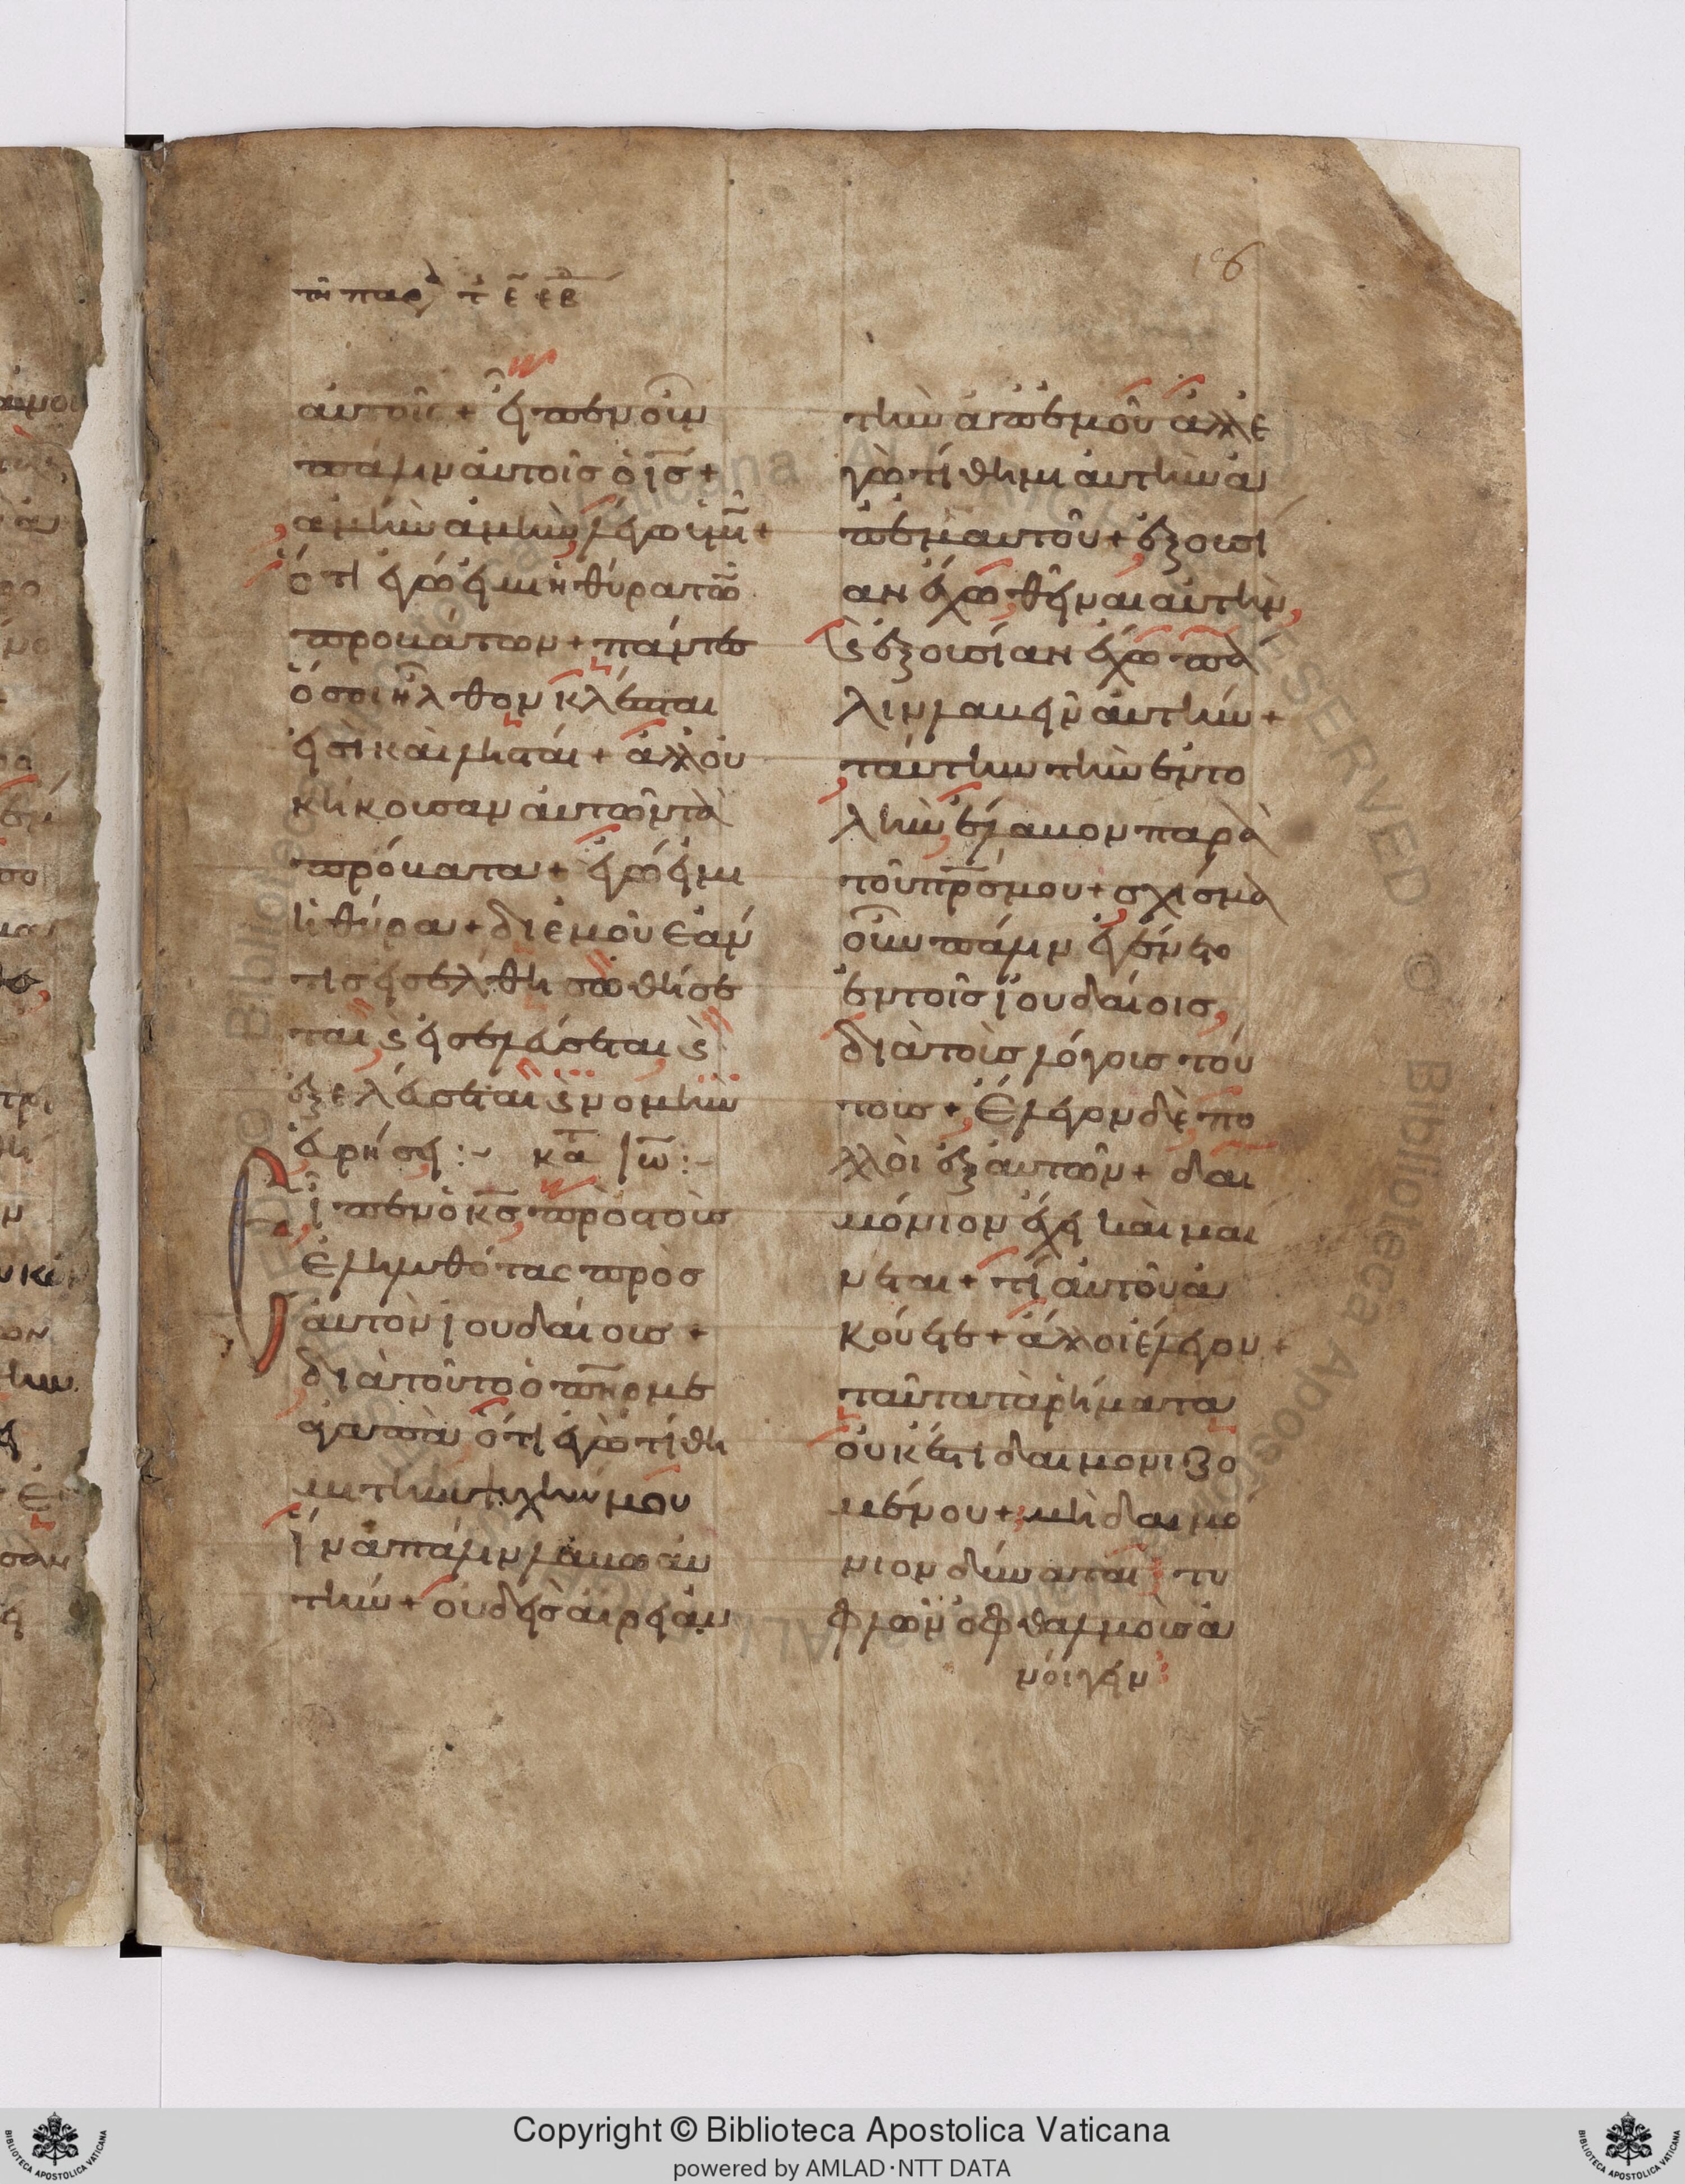 186
τη παρ τ ε εβ
αυτοῖς + εἶπεν οὖν
πάλιν αὐτοῖς ὁ ις +
ἀμὴν ἀμὴν λέγω ὑμῖ +
ὅτι ἐγώ εἰμι η θύρα τῶ
προβάτων + πάντες
ὅσοι ηλθον κλέπται
εἰσὶ καὶ λησταί + ἀλλ οὐ
κήκουσαν αὐτῶν τὰ
πρόβατα + ἐγώ εἰμι
ἡ θύρα + δι ἐμοῦ εάν
τις εἰσελθη σωθήσε
ται ϛ εἰσελεύσεται ϛ
ἐξελέυσεται ϛ νομὴν
ἑυρησει :- κα ιω :-
Εἶπεν ὁ κς πρὸς τοὺς
ἐληλυθότας πρὸς
αὐτὸν ἰουδαίους +
διὰ τοῦτο ὁ πηρ με
ἀγαπᾶ ὅτι ἐγὼ τίθη
μι τὴν ψυχήν μου
ἵνα πάλιν λάβω ἀυ
τήν + οὐδεὶς αἴρει ἀυ
τὴν ἀπ ἐμοῦ ἀλλ ε
γὼ τίθημι αὐτὴν ἀ
π ἐμαυτοῦ + ἐξουσί
αν ἔχω θεῖναι αὐτήν,
ϛ ἐξουσίαν ἔχω πά
λιν λαβεῖν αὐτήν +
ταύτην τὴν ἐντο
λὴν ἔλαβον παρὰ
τοῦ πρς μου + σχίσμα
οὖν πάλιν ἐγένετο
ἐν τοῖς ἰουδαίοις,
διὰ τοὺς λόγους τού
τους + ἔλεγον δὲ πο
λλοὶ ἐξ αὐτῶν + δαι
μόνιον ἔχει καὶ μαι
νεται + τί αὐτοῦ ἀ
κούετε + ἄλλοι ἔλεγον +
ταῦτα τὰ ῥήματα
οὐκ ἔστι δαιμονιζο
μένου + μὴ δαιμό
νιον δύναται τυ
φλῶν ὀφθαλμοὺς ἀ
νόιγειν
Copyright © Biblioteca Apostolica Vaticana
powered by AMLAD·NTT DATA